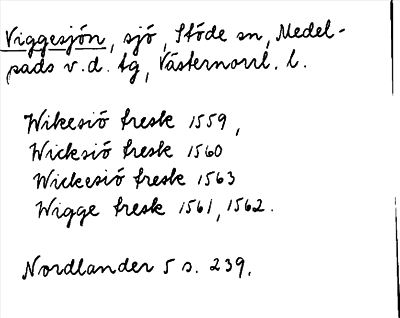 Viggesjön, sjö, Stöde sn, Medel-
pads v.d. tg, Västernorrl. l.
Wikesiö fresk 1559,
Wicksiö fresk 1560
Wickesiö fresk 1563
Wigge fresk 1561, 1562.
Nordlander 5 s. 239.